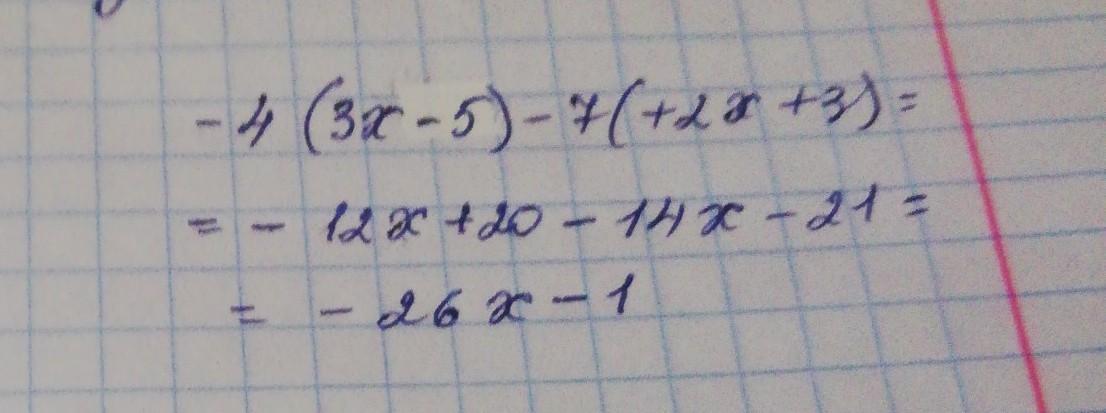 -4(3x-5)-7(+2x+3)=
=-12x+20-14x-21=
=-26x-1